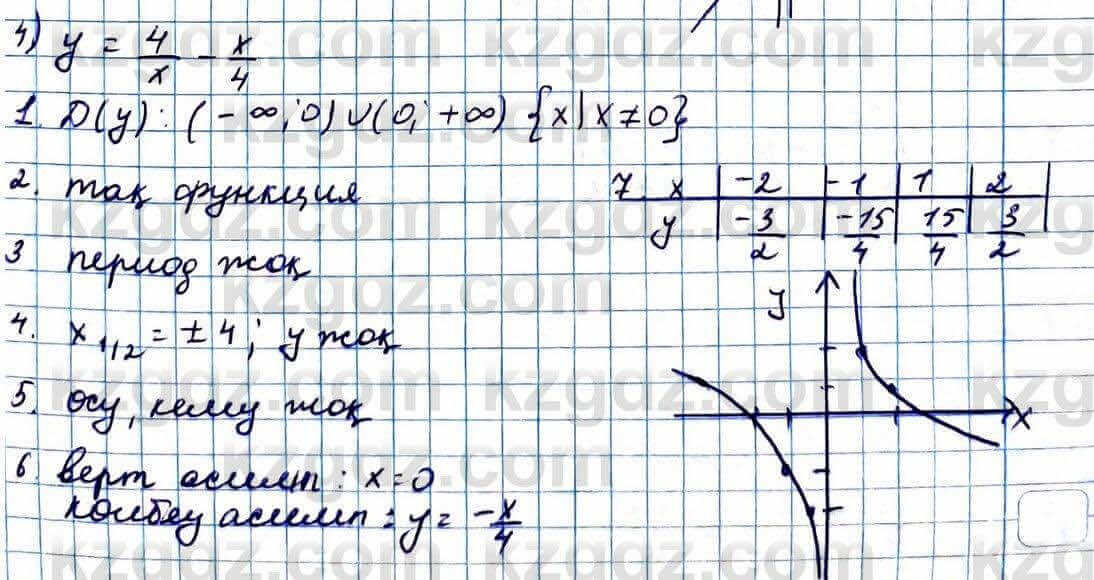 4) y = 4/x - x/4
1. D(y): (-∞; 0) ∪ (0; +∞) {x | x ≠ 0}
2. тақ функция
3 период жоқ
4. x₁,₂ = ± 4; y жоқ
5. өсу, кему жоқ
6. верт асимп: x = 0
көлбеу асимп: y = -x/4
7. x | -2 | -1 | 1 | 2
y | -3/2 | -15/4 | 15/4 | 3/2
y
x
kzgdz.com